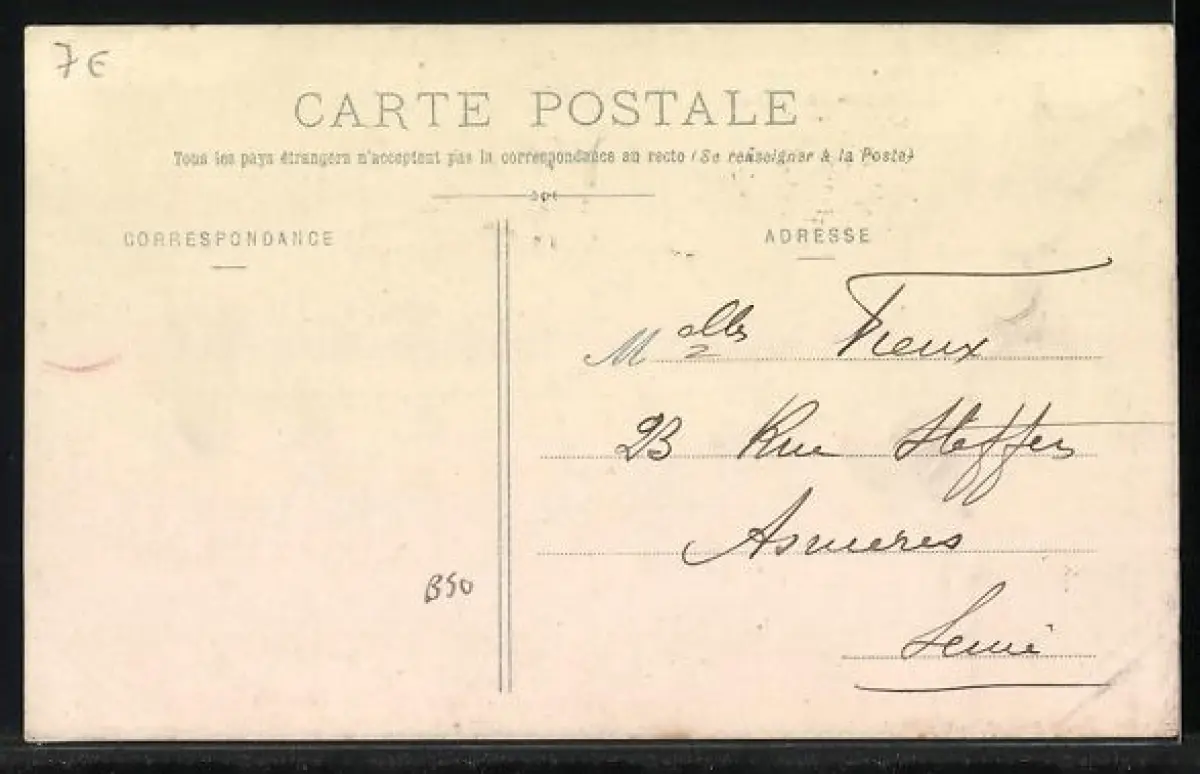 7€
CARTE POSTALE
Tous les pays étrangers n'acceptent pas la correspondance au recto (Se renseigner à la Poste)
CORRESPONDANCE
ADRESSE
Melles Fieux
23 Rue Steffen
Asnieres
Seine
B50